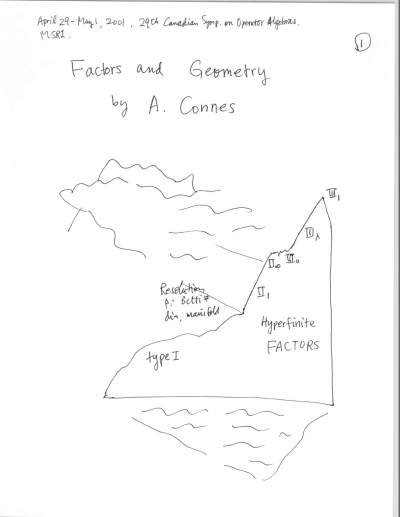 April 29 - May 1, 2001, 29th Canadian Symp. on Operator Algebras.
MSRI.
1
Factors and Geometry
by A. Connes
III₁
III_λ
II∞ III₀
Resolution
p: Betti #
dim. manifold
II₁
Hyperfinite
FACTORS
type I